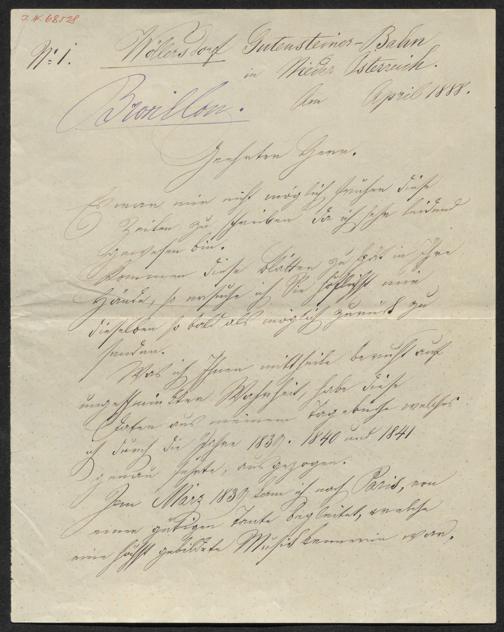 J.N. 68528
No 1.
Wöllersdorf Gutensteiner-Bahn
in Nieder Österreich.
Am April 1888.
Brouillon.
Geehrter Herr.
Es war mir nicht möglich früher diese
Zeilen zu schreiben da ich sehr leidend
gewesen bin.
Kommen diese Blätter zu spät in Ihre
Hände, so ersuche ich Sie höflichst mir
dieselben so bald als möglich zurück zu
senden.
Was ich Ihnen mittheile beruht auf
ungeschminkter Wahrheit, habe diese
Daten aus meinem Tagebuche welches
ich durch die Jahre 1839. 1840 und 1841
genau führte, aus gezogen.
Im März 1839 kam ich nach Paris, von
einer gütigen Tante begleitet, welche
eine höchst gebildete Musickennerin war.